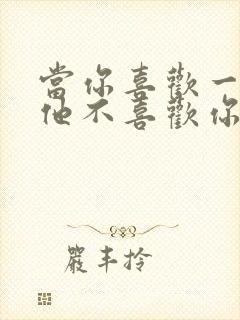 當你喜歡一
他不喜歡你
嚴丰拎